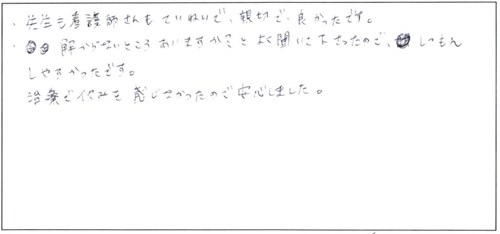 ・先生も看護師さんもていねいで、親切で良かったです。
・解からないところありますか？とよく聞いて下さったので、しつもん
しやすかったです。
治療で痛みを感じなかったので安心しました。